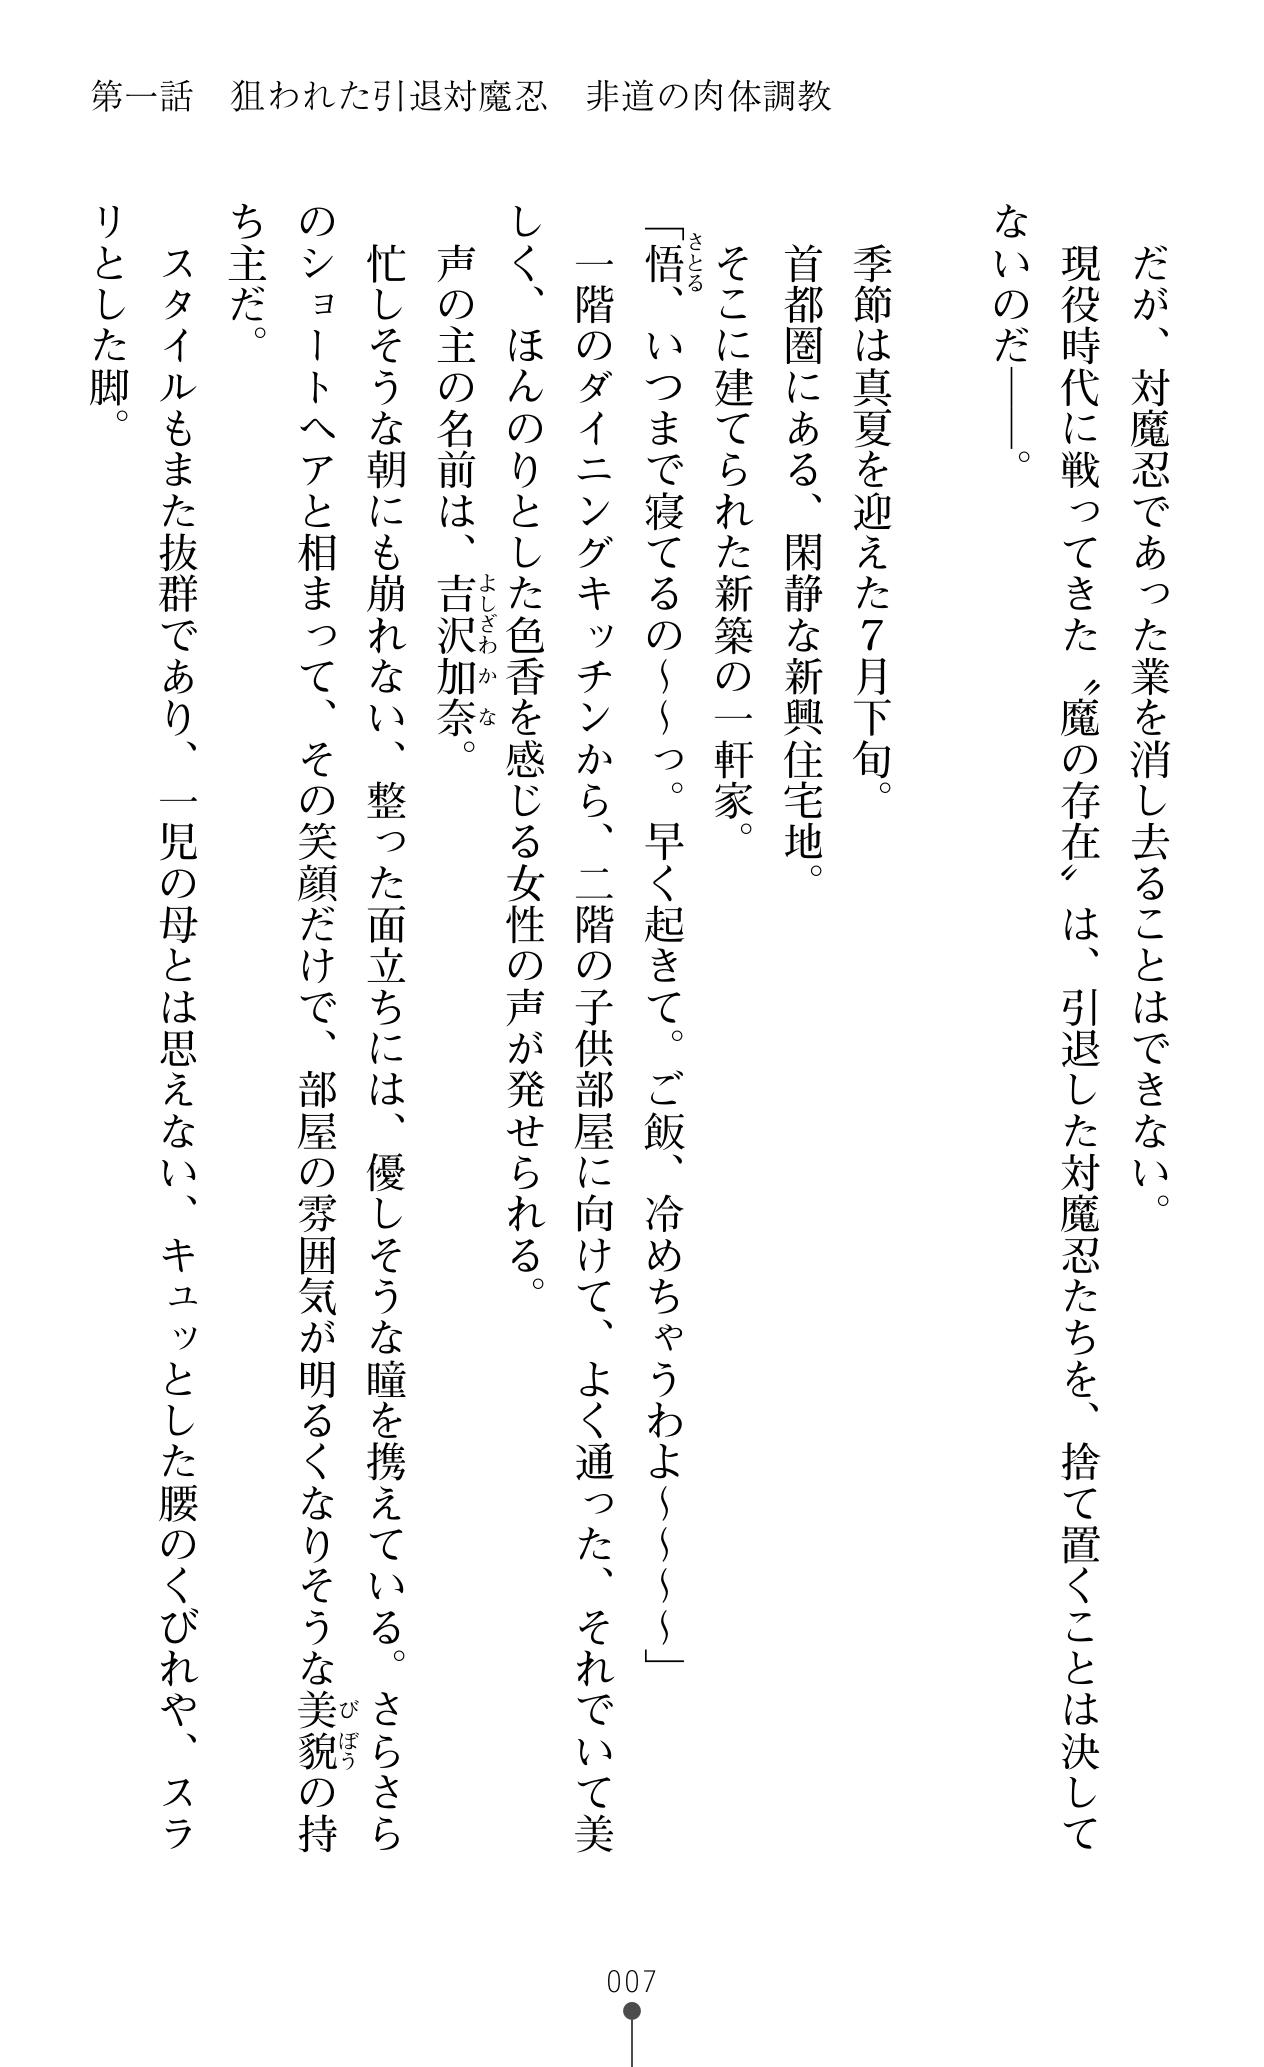 第一話　狙われた引退対魔忍　非道の肉体調教
だが、対魔忍であった業を消し去ることはできない。
現役時代に戦ってきた〝魔の存在〟は、引退した対魔忍たちを、捨て置くことは決して
ないのだ――。
季節は真夏を迎えた７月下旬。
首都圏にある、閑静な新興住宅地。
そこに建てられた新築の一軒家。
「悟、いつまで寝てるの～～っ。早く起きて。ご飯、冷めちゃうわよ～～～～」
さとる
一階のダイニングキッチンから、二階の子供部屋に向けて、よく通った、それでいて美
しく、ほんのりとした色香を感じる女性の声が発せられる。
声の主の名前は、吉沢加奈。
よしざわかな
忙しそうな朝にも崩れない、整った面立ちには、優しそうな瞳を携えている。さらさら
のショートヘアと相まって、その笑顔だけで、部屋の雰囲気が明るくなりそうな美貌の持
びぼう
ち主だ。
スタイルもまた抜群であり、一児の母とは思えない、キュッとした腰のくびれや、スラ
リとした脚。
007